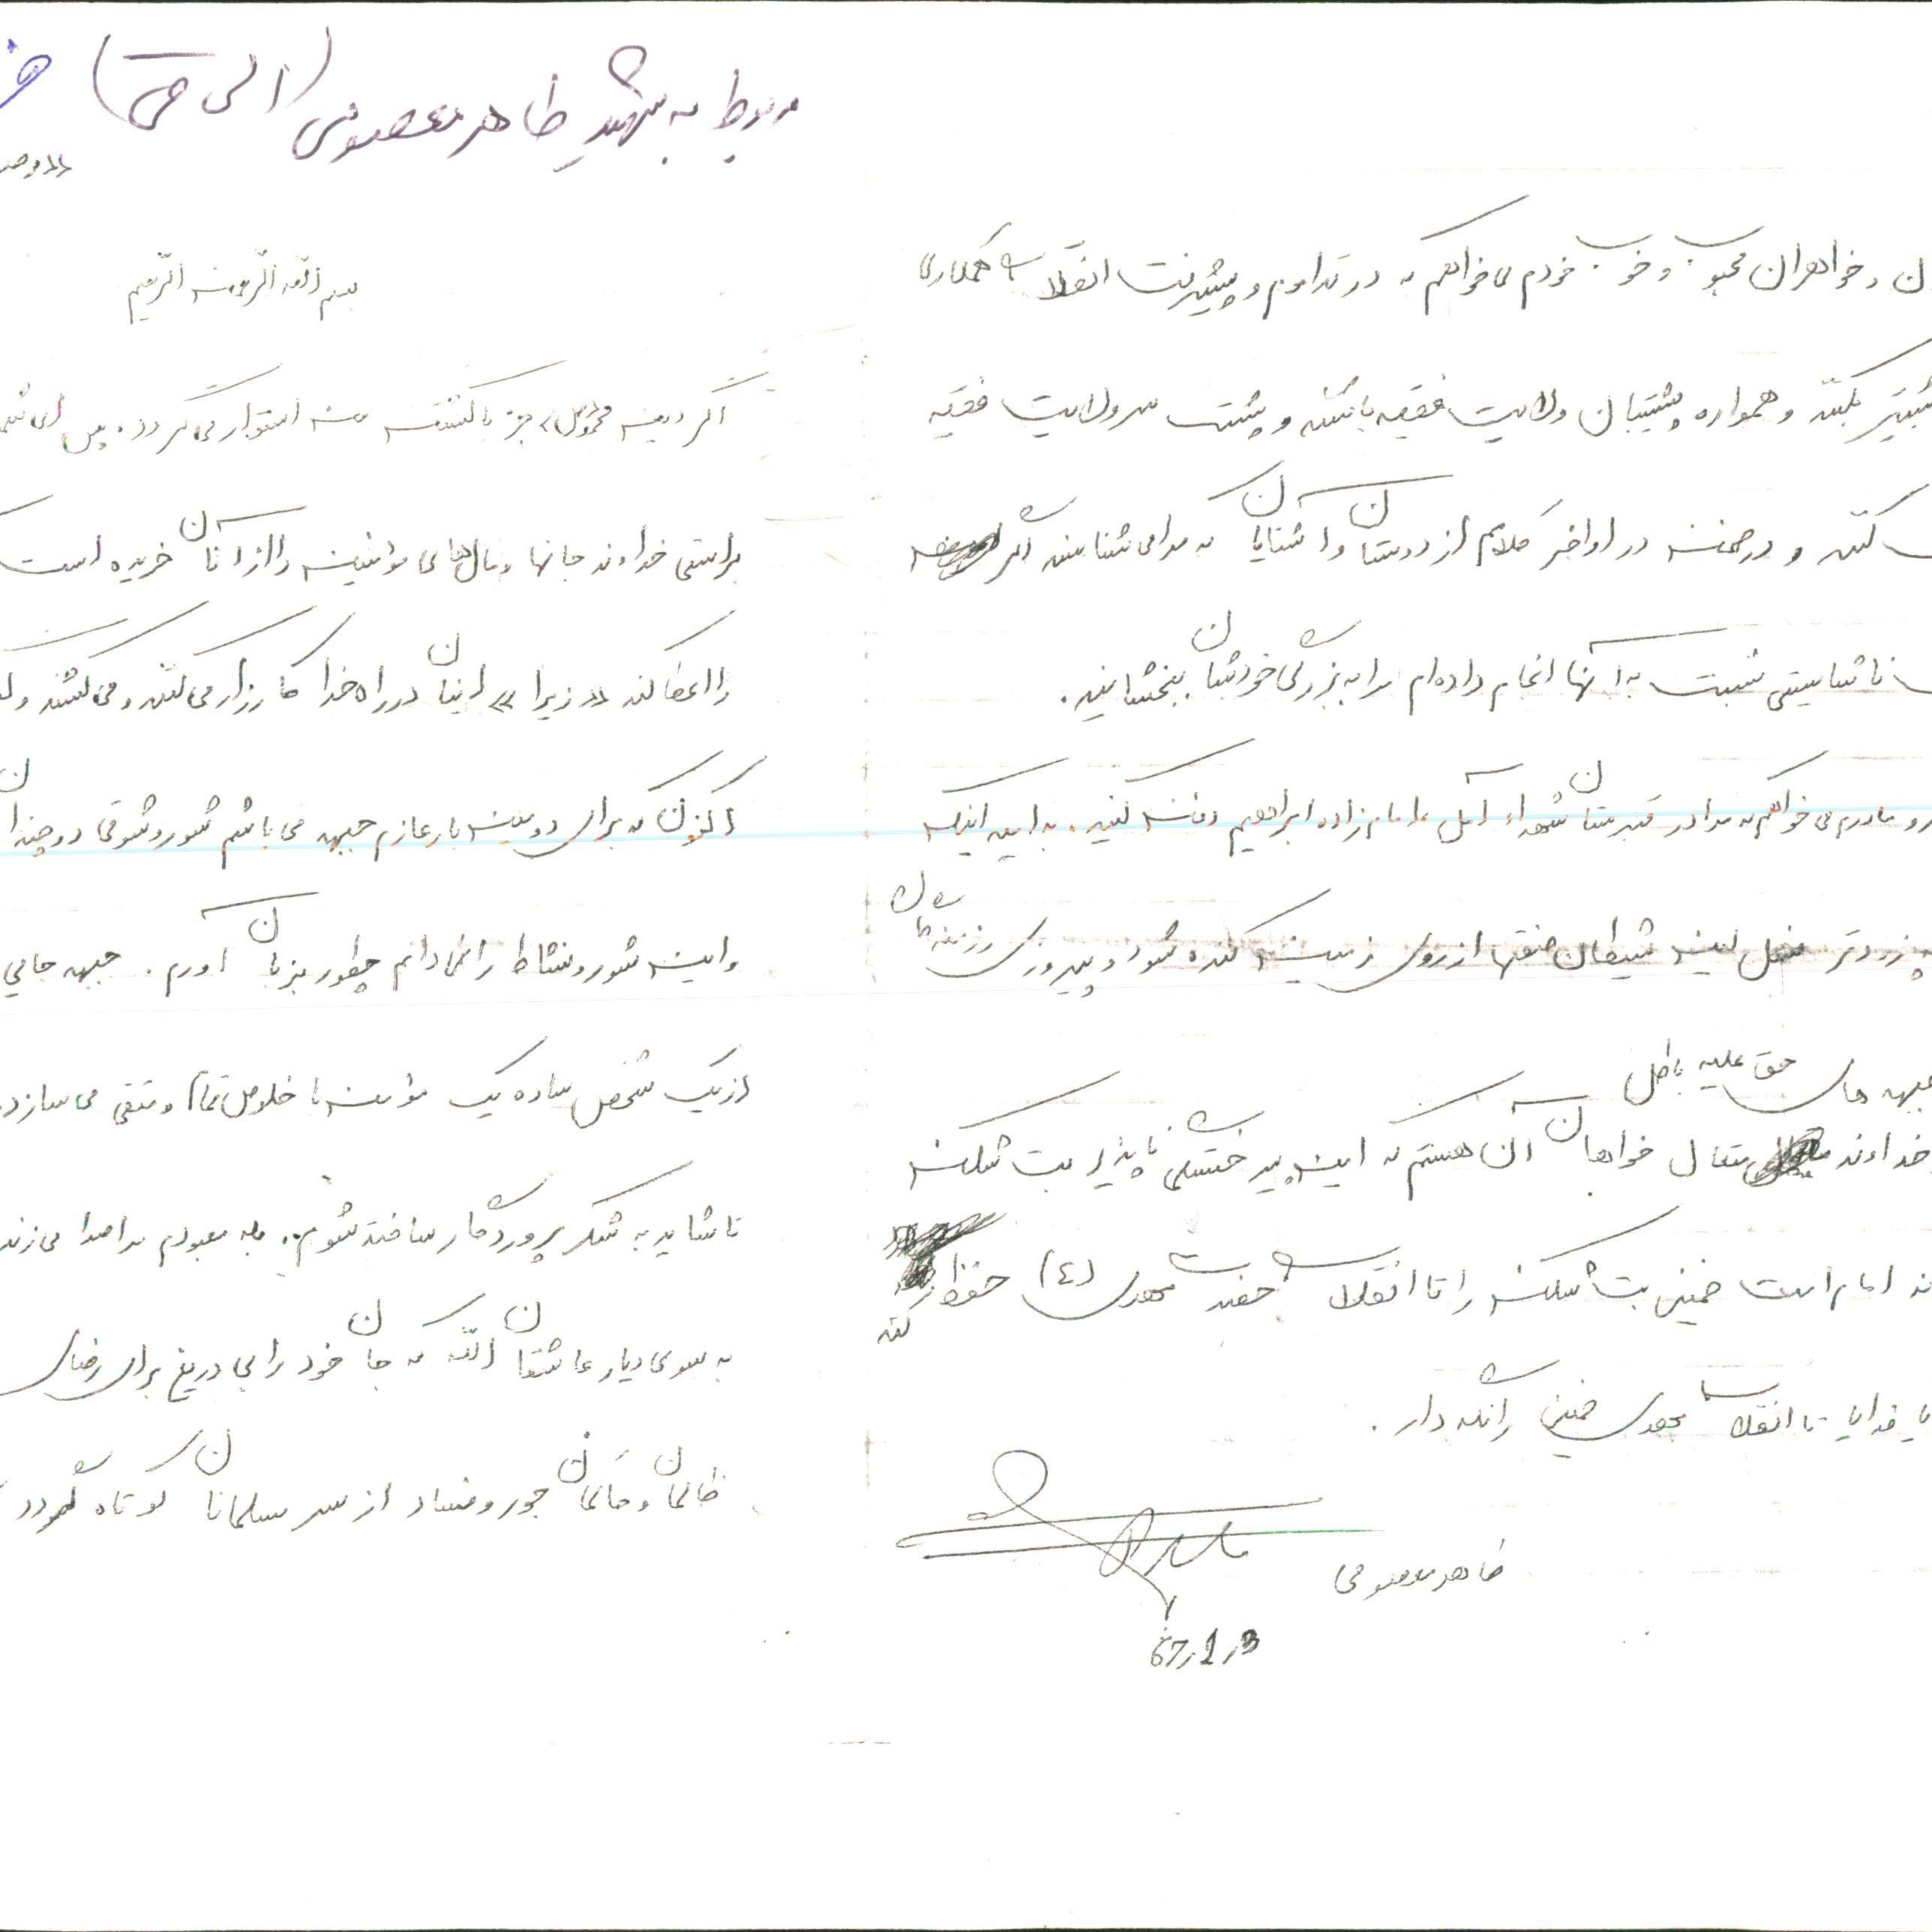 مربوط به شهید طاهر معصومی (الی حق)
بسم الله الرحمن الرحیم
اگر دین محمد(ص) جز با کشتن من استوار نمی گردد. پس ای
براستی خداوند جانها و مال های مؤمنین را از آنان خریده است
را اعطا کند «زیرا» اینان در راه خدا کارزار می کنند و می کشند و
اکنون که برای دومین بار عازم جبهه می باشم شور و شوقی دو چندان
و این شور و نشاط را نمی دانم چطور بزبان آورم. جبهه جایی
از یک شخص ساده یک مؤمن با خلاص تمام و متقی می سازد
تا شاید به شکر پروردگار ساخته شوم. بله معبودم مرا صدا می زند
به سوی دیار عاشقان الله که جان خود را بی دریغ برای رضای
ظالمان و حاکمان جور و فساد از سر مسلمانان کوتاه گردد
ن و خواهران محبوب و خوب خودم می خواهم که در تداوم و پیشرفت انقلاب همکاری
بیشتر بکنند و همواره پشتیبان ولایت فقیه باشند و پشت سر ولایت فقیه
کنند و در ضمن در اواخر کلامم از دوستان و آشنایان که مرا می شناسند اگر
ناشایستی نسبت به آنها انجام داده ام مرا به بزرگی خودشان ببخشایند.
و مادرم می خواهم که مرا در قبرستان شهداء آمل، امام زاده ابراهیم دفن کنید. به امید اینکه
زودتر نسل این شیطان صفتها از روی زمین کنده شود و پیروزی رزمندگان
جبهه های حق علیه باطل
خداوند متعال خواهان آن هستم که این پیر خستگی ناپذیر بت شکن
امام امت خمینی بت شکن را تا انقلاب حضرت مهدی (ع) حفظ کند
خدایا تا انقلاب مهدی خمینی را نگه دار.
طاهر معصومی
67/1/3